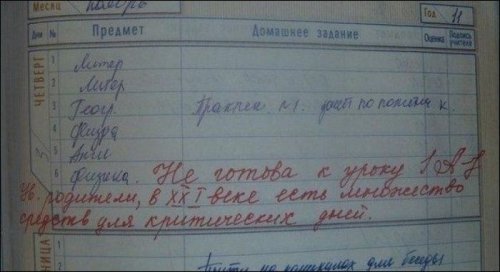 Месяц ноябрь
Год 11
Дни № Предмет Домашнее задание Оценка Подпись учителя
ЧЕТВЕРГ
1 Литер
2 Литер
3 Геогр. Практич. №1.
4 Физра
5 Англ
6 Физика. Не готова к уроку
Ув. родители, в XXI веке есть множество
средств для критических дней.
1
2 на каникулах для беседы